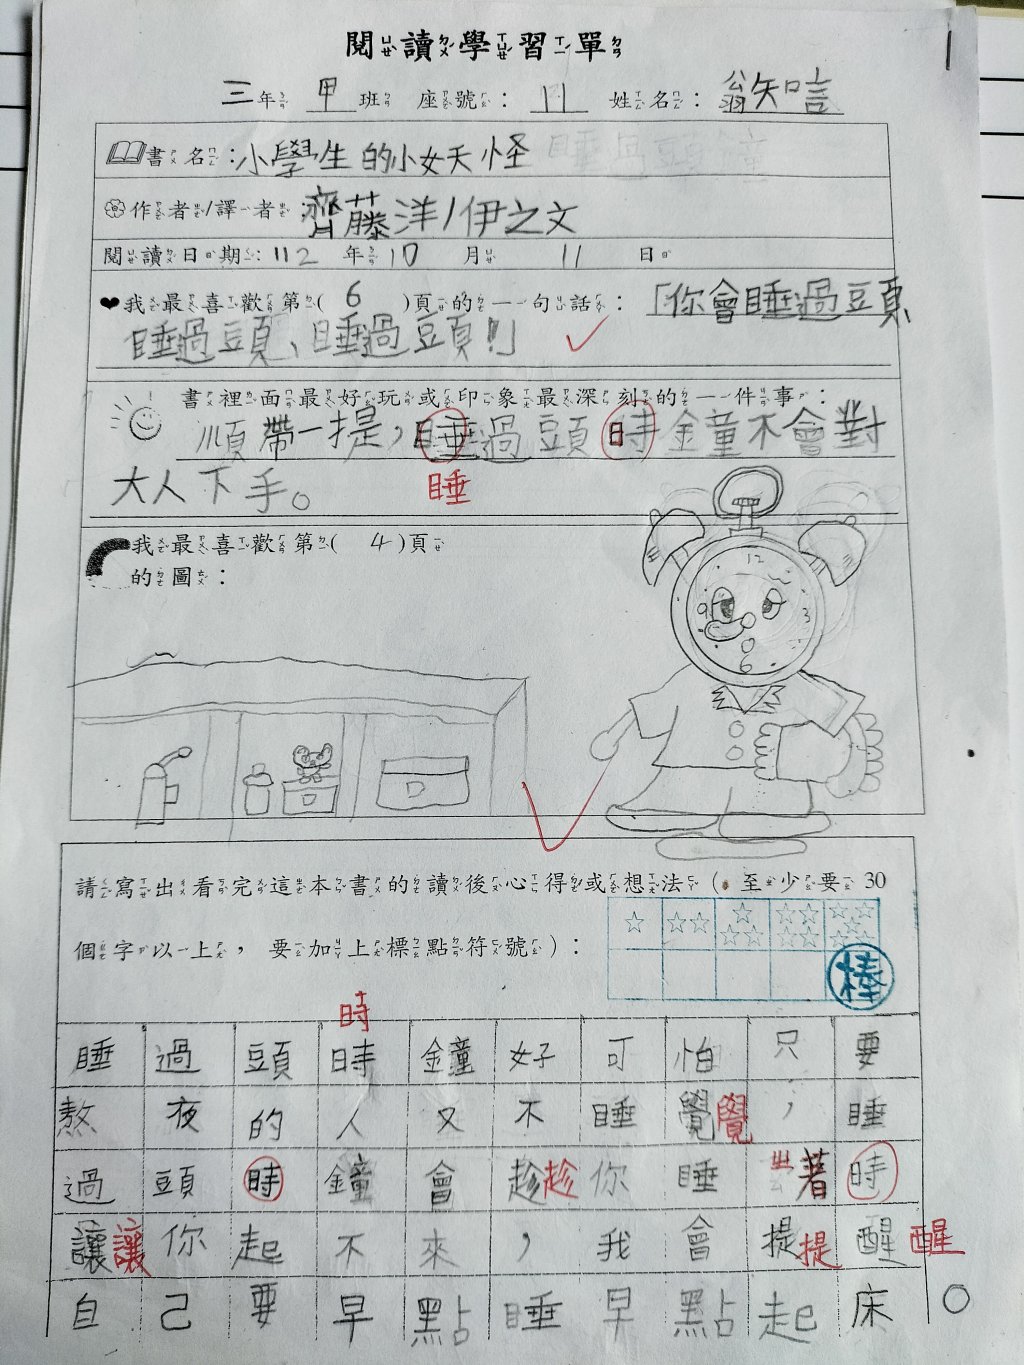 閱讀學習單
三年 甲班 座號：11 姓名：翁知言
書名：小學生的小妖怪 睡過頭鐘
作者/譯者：齊藤洋/伊之文
閱讀日期：112年10月11日
❤我最喜歡第(6)頁的一句話：「你會睡過頭、
睡過頭、睡過頭!」
書裡面最好玩或印象最深刻的一件事：
順帶一提，睡過頭時鐘不會對
大人下手。
睡
我最喜歡第(4)頁
的圖：
12
9 3
6
請寫出看完這本書的讀後心得或想法(至少要30
個字以上，要加上標點符號)：
棒
時
睡過頭時鐘好可怕只要
熬夜的人又不睡覺覺，睡
過頭時鐘會趁趁你睡ㄓ著時
讓讓你起不來，我會提提醒醒
自己要早點睡早點起床。